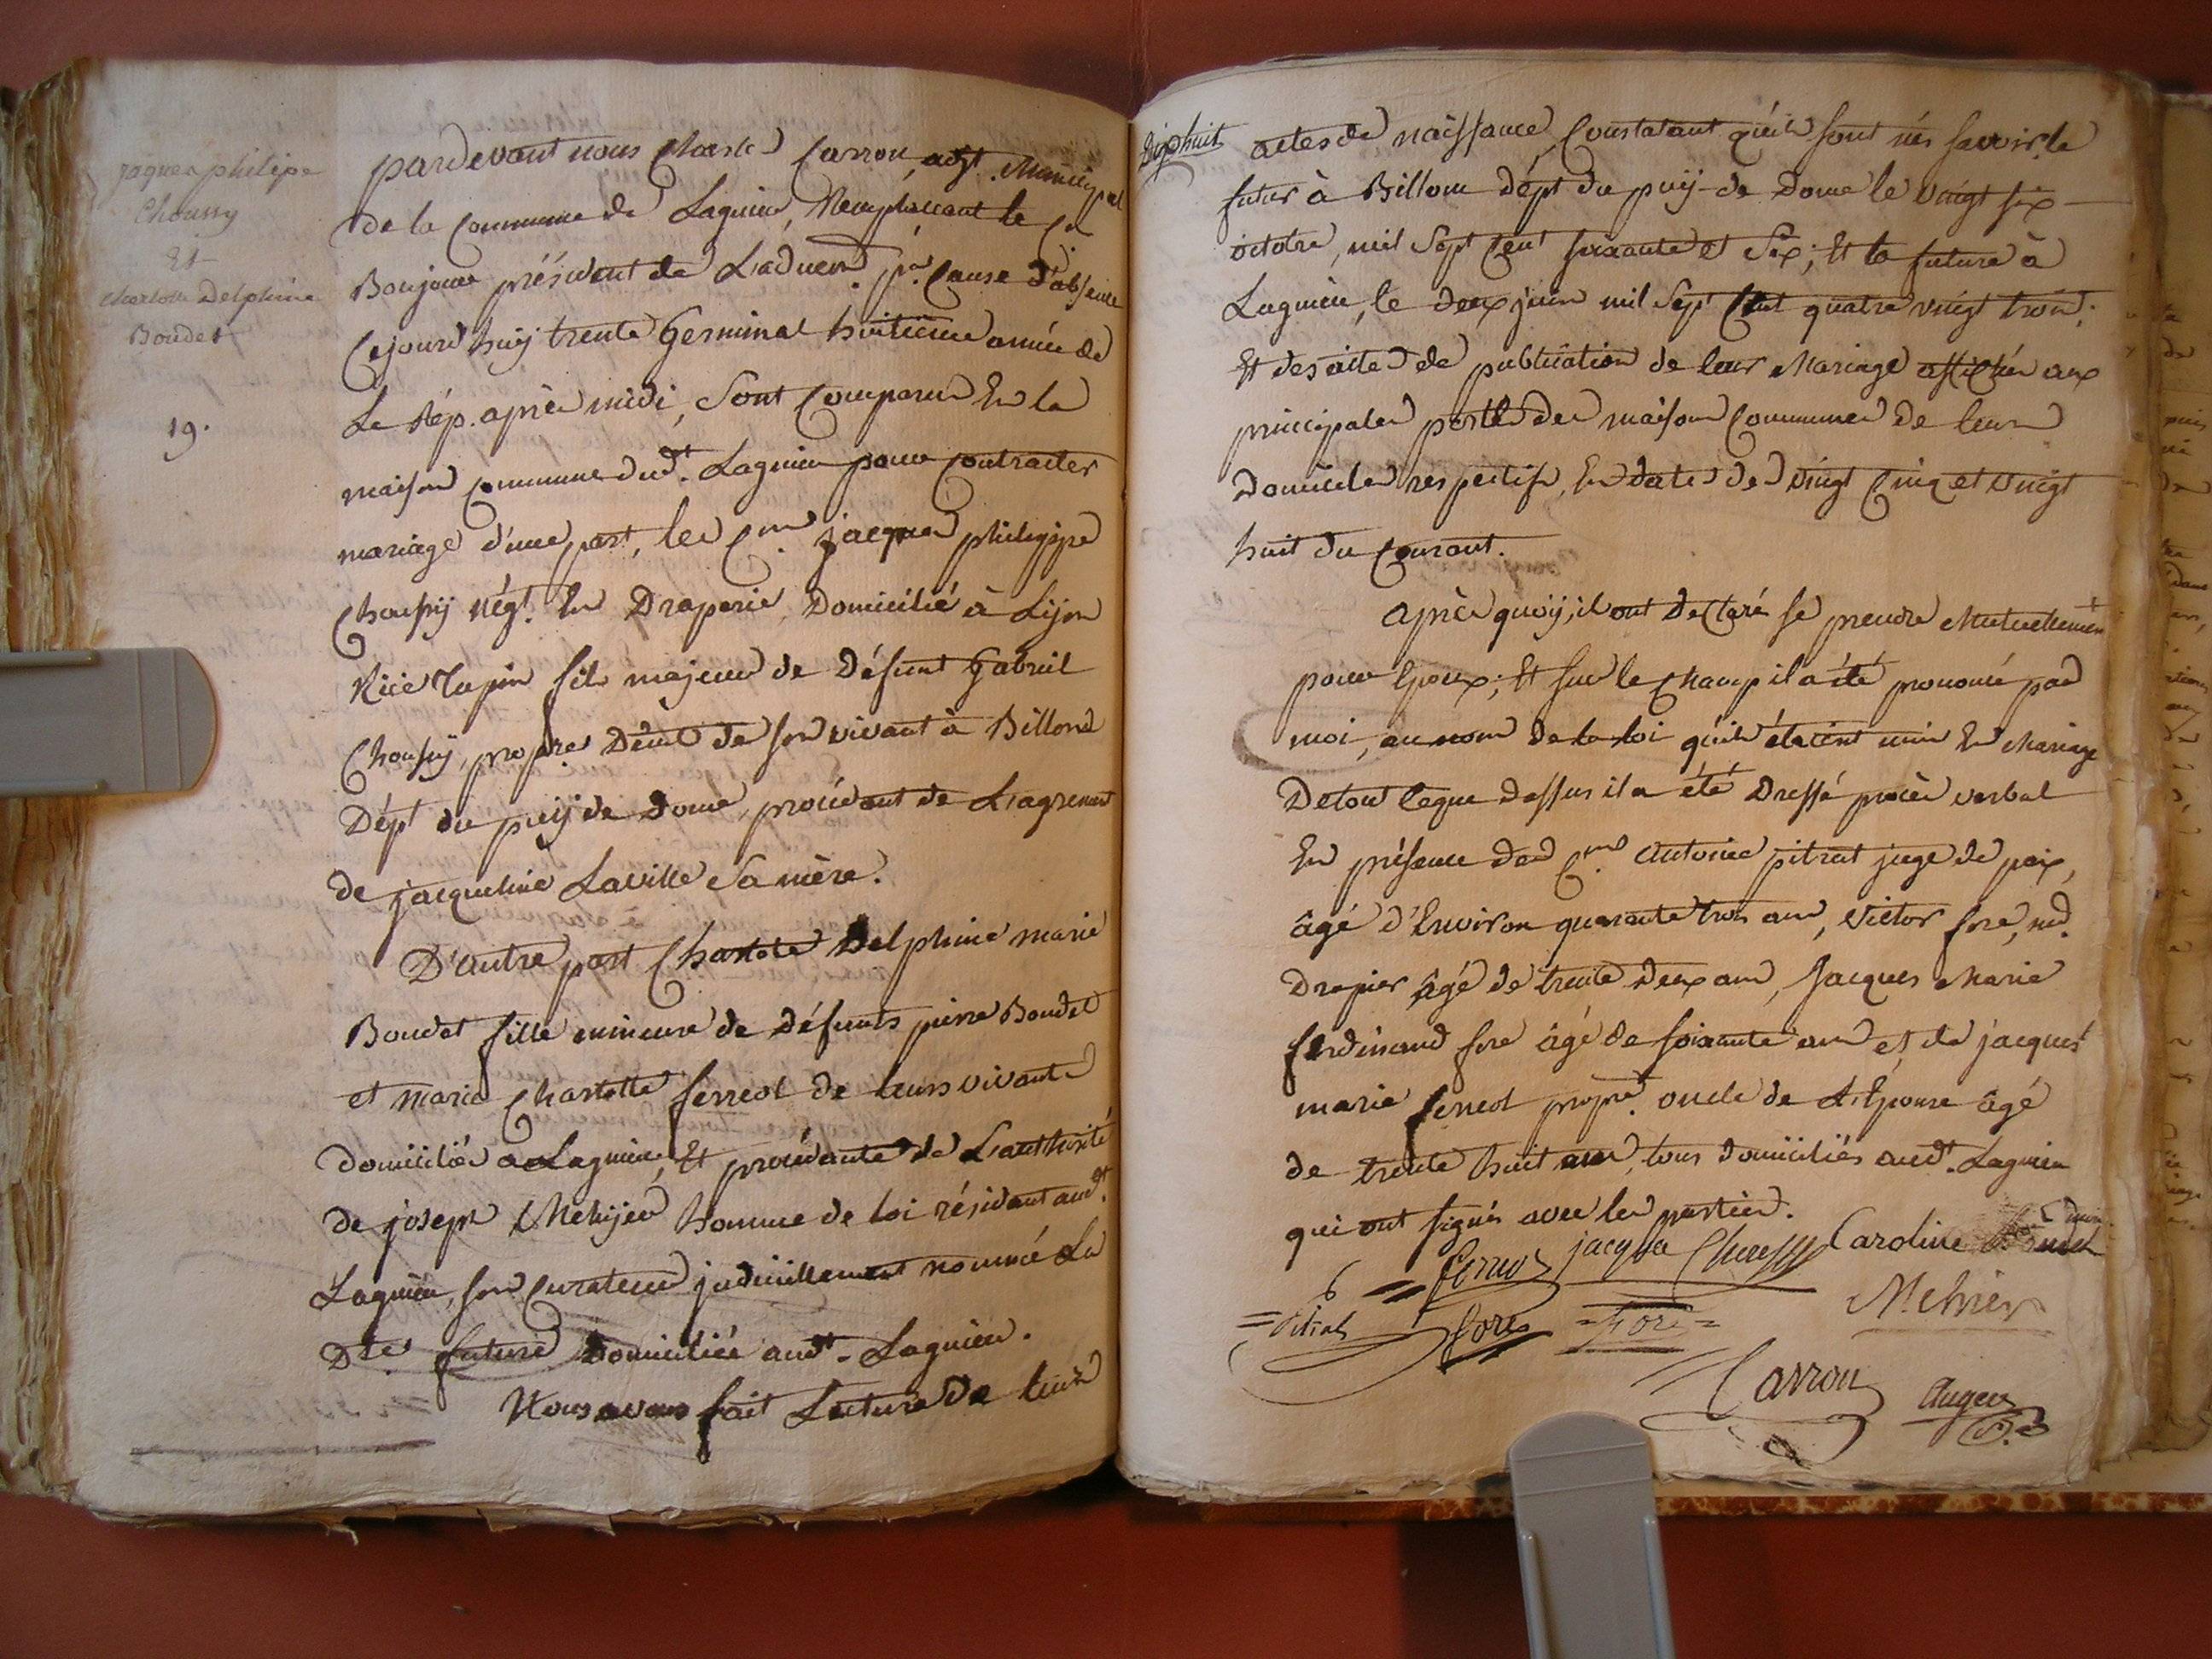 Jaques philipe
Choussy
Et
charlotte Delphine
Boudet
19.
pardevant nous Charles Carron, agt. Municipal
de la Commune de Lagnieu, Remplassant le Cn
Boujour présidant de L'admon. pr. Cause d'absence
Cejourd'huij trente Germinal huitieme année de
La Rép. après midi, Sont Comparus En la
maison commune dudt. Lagnieu pour contracter
mariage d'une part, les Cens. jacques philippe
Choussij Négt. En Draperie, Domicilié à Lijon
Rüe Tupin fils majeur de Défunt Gabriel
Choussij, propre. de son vivant à Billond
Dépt du puij de Dome, procédant de L'agrement
de jacqueline Laville Sa mère.
D'autre part Charlote Delphine marie
Boudet fille mineure de défunts pierre Boudet
et marie Charlotte ferreol de leurs vivants
domiciliés a Lagnieu, Et procédante de L'authorité
de joseph Mehijer homme de loi résidant audt.
Lagnieu, son Curateur judiciellement nommé La
Dte. future Domiciliée audt. Lagnieu.
Nous avons fait Lecture de leurs
Dixhuit
actes de naissance, Constatant qu'ils sont nés savoir, le
futur à Billom Dépt du puij-de Dome le vingt six
octobre, mil Sept Cent soixante et Six; Et la future à
Lagnieu, le deux juin mil Sept Cent quatre vingt trois;
Et des actes de publication de leur Mariage affichés aux
principales portes des maisons Communes de leurs
Domiciles respectifs, En dates des vingt Cinq et vingt
huit du Courant.
Après quoij, ils ont Déclaré se prendre Mutuellement
pour Epoux; Et sur le Champ il a été prononcé par
moi, au nom de la loi qu'ils étaient unis En Mariage
De tout ce que dessus il a été Dressé procès verbal
En présence des Cens. Antoine pitrat juge de paix,
âgé d'Environ quarante trois ans, Victor fore, md.
Drapier âgé de trente deux ans, Jacques Marie
ferdinand fore âgé de soixante ans et de jacques
marie ferreol propre. oncle de L'Epouse âgé
de trente huit ans, tous domiciliés audt. Lagnieu
qui ont signés avec les parties.
ferreol jacques Choussy Caroline Boudet
Pitrat fore Fore Mehier
Carron Auger